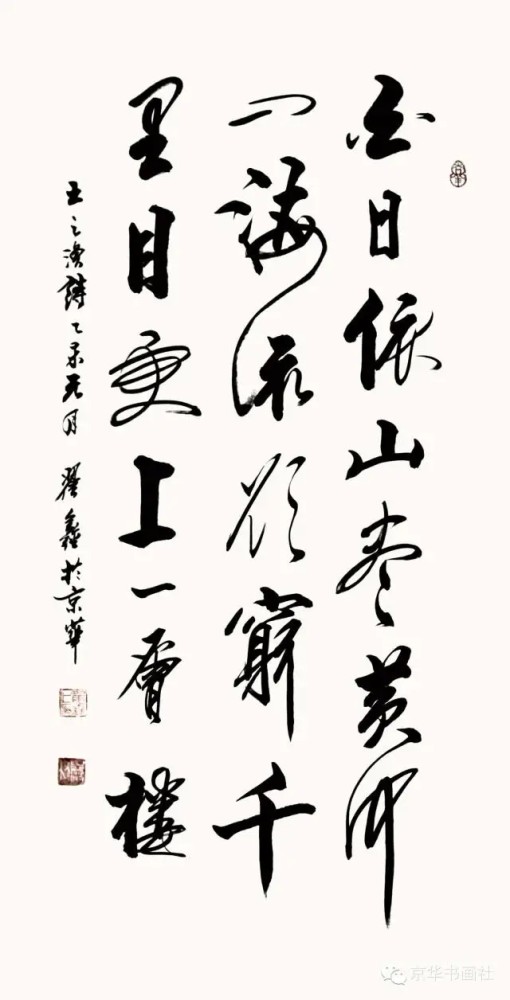 白日依山盡黄河
入海流欲窮千
里目更上一層樓
王之渙詩乙未元月 翟鑫於京華
京华书画社